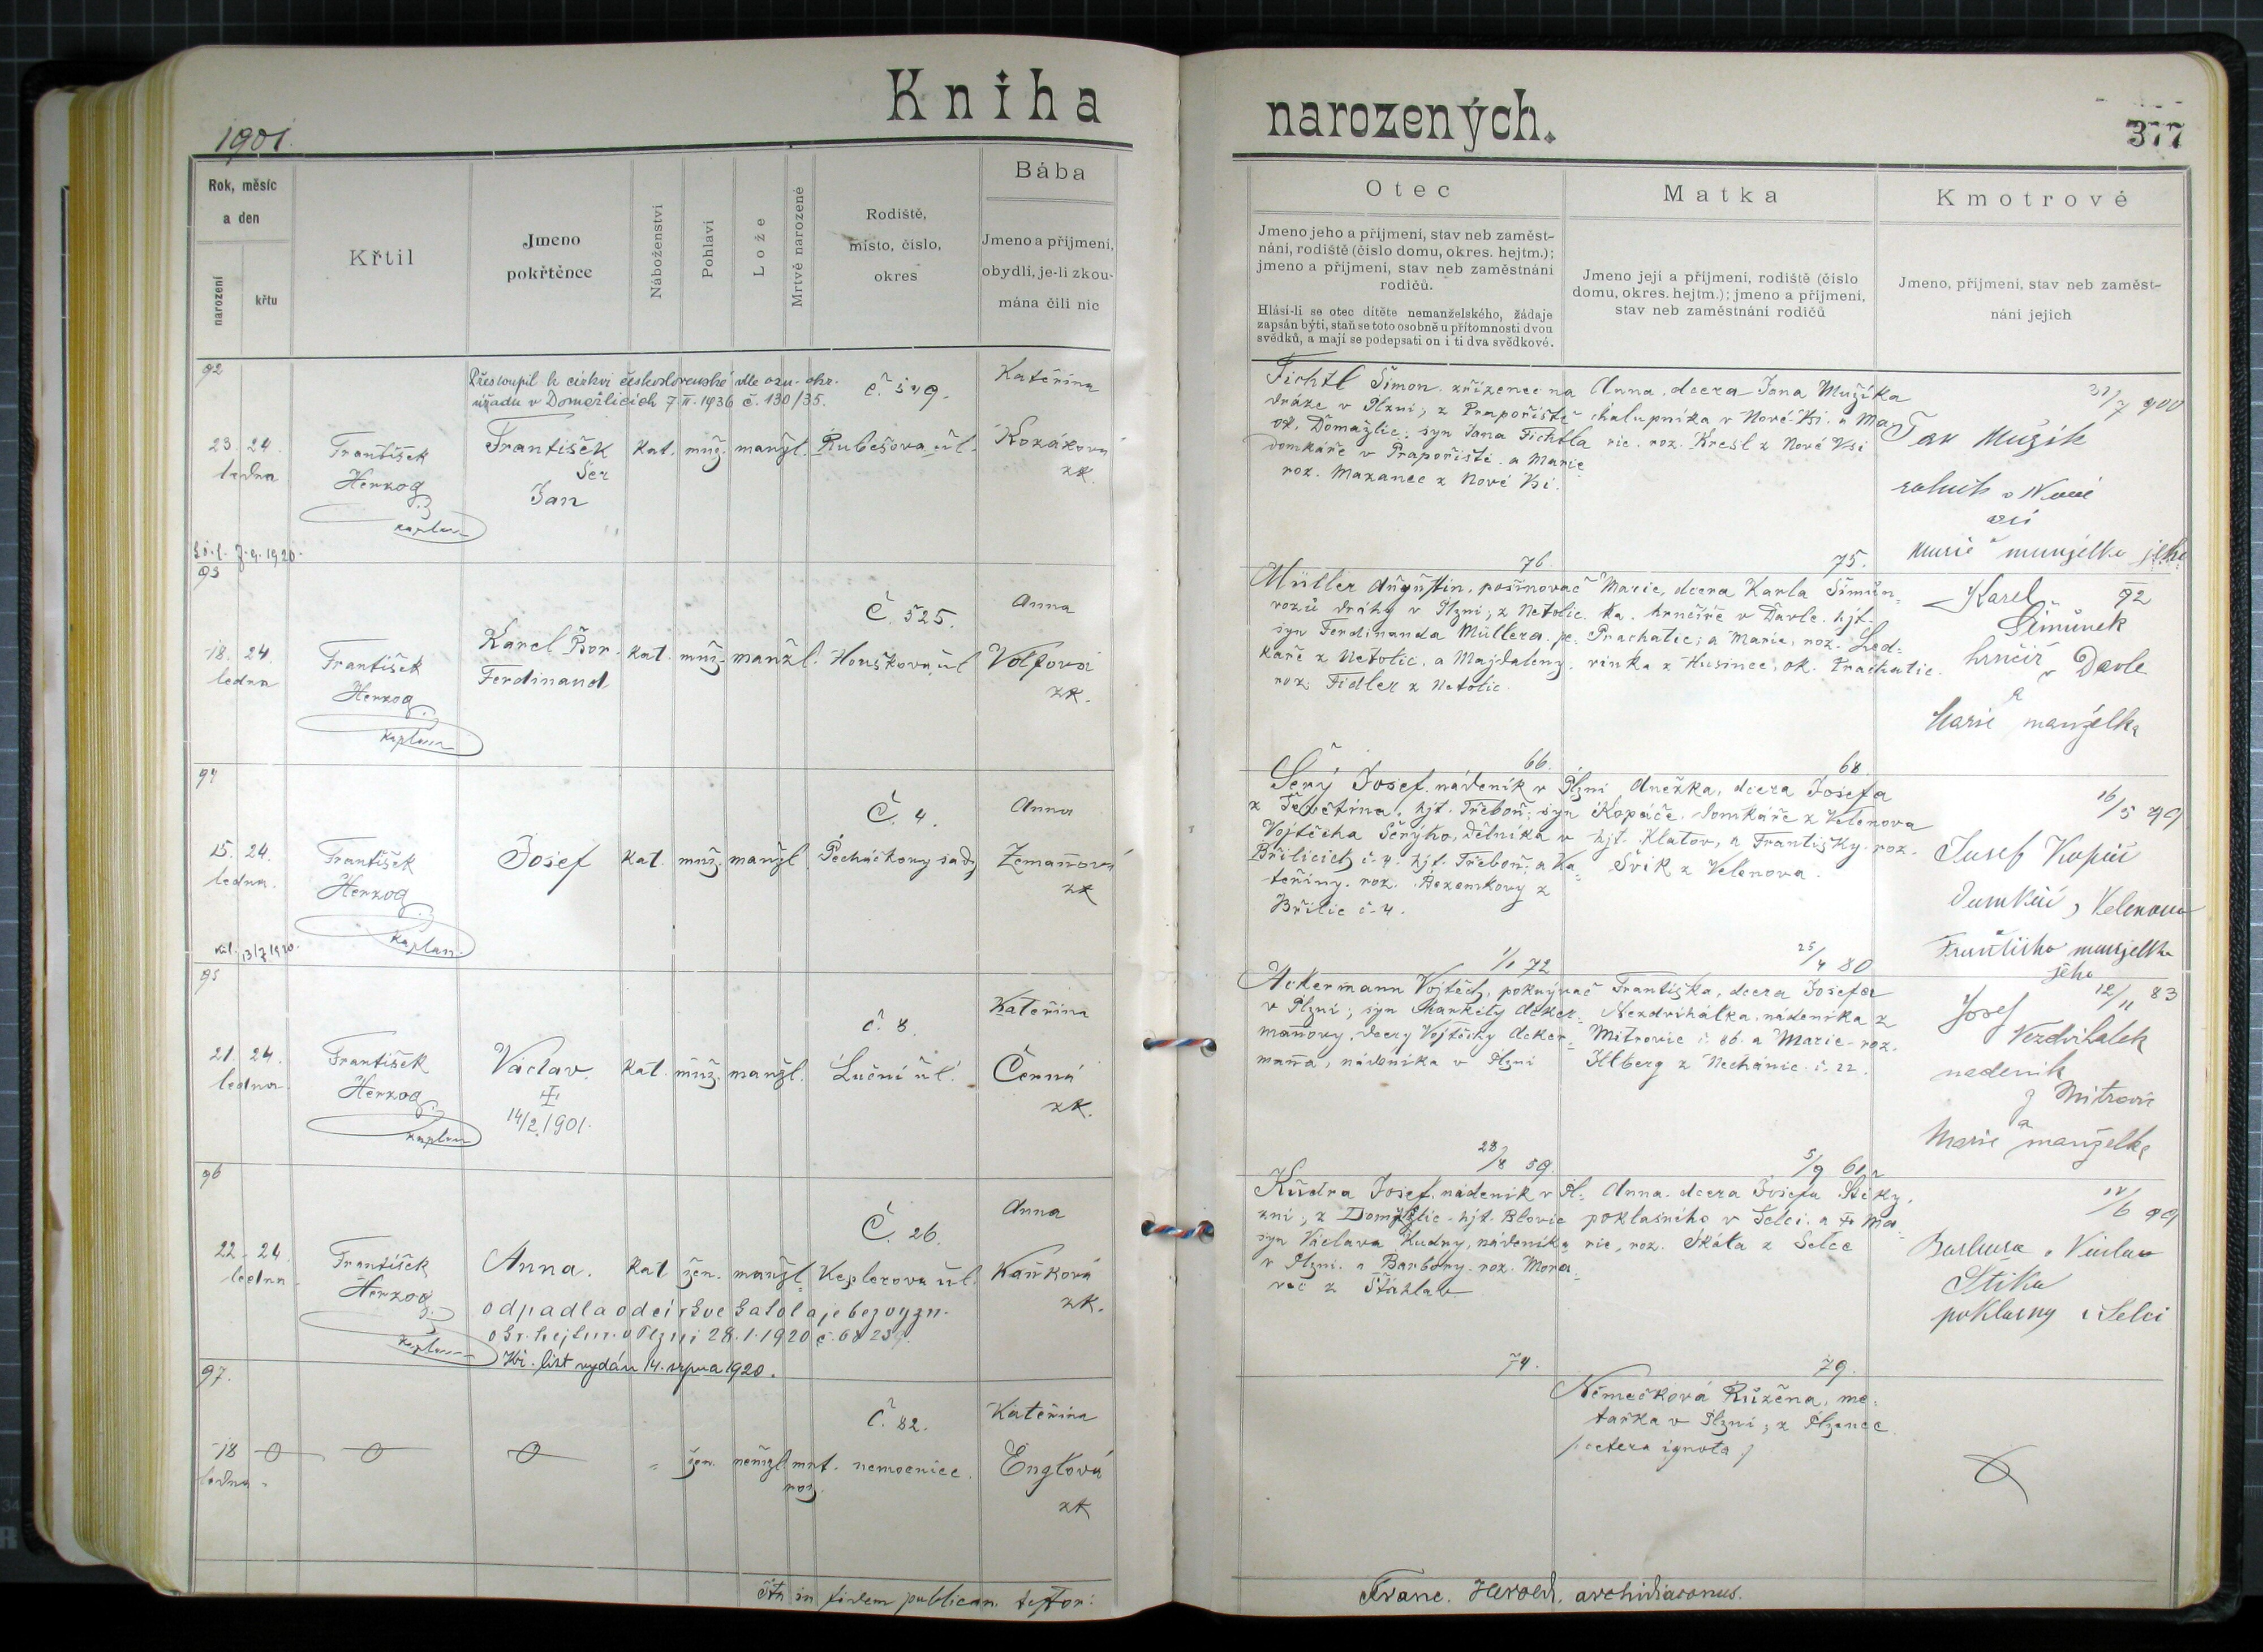 Kniha
narozených.
1901.
377
Rok, měsíc
a den
narození
křtu
Křtil
Jmeno
pokřtěnce
Náboženství
Pohlaví
Lože
Mrtvě narozené
Rodiště,
místo, číslo,
okres
Bába
Jmeno a příjmení,
obydlí, je-li zkou-
mána čili nic
Otec
Jmeno jeho a příjmení, stav neb zaměst-
nání, rodiště (číslo domu, okres. hejtm.);
jmeno a příjmení, stav neb zaměstnání
rodičů.
Hlásí-li se otec dítěte nemanželského, žádaje
zapsán býti, staň se toto osobně u přítomnosti dvou
svědků, a mají se podepsati on i ti dva svědkové.
Matka
Jmeno její a příjmení, rodiště (číslo
domu, okres. hejtm.); jmeno a příjmení,
stav neb zaměstnání rodičů
Kmotrové
Jmeno, příjmení, stav neb zaměst-
nání jejich
92
Přestoupil k církvi československé dle ozn. okr.
úřadu v Domažlicích 7.II.1936 č. 130/35.
23. 24.
ledna
František
Herzog
kaplan
František
Jan
kat.
muž.
manžl.
Č. 549.
Rubešova ul.
Kateřina
Kozáková
zk.
7.9.1920.
Fichtl Šimon, zřízenec na
dráze v Plzni; z Prapořiště
ok. Domažlic; syn Jana Fichtla
domkáře v Prapořišti a Marie
roz. Mazanec z Nové Vsi.
Anna, dcera Jana Mužíka
chalupníka v Nové Vsi a Ma-
rie, roz. Kresl z Nové Vsi
31/7 900
Jan Mužík
rolník v Nové
vsi
a
Marie manželka jeho
93
18. 24.
ledna
František
Herzog
kaplan
Karel Bor.
Ferdinand
kat.
muž.
manžl.
Č. 525.
Houškova ul.
Anna
Volfová
zk.
76.
Müller Augustin, pošinovač
vozů dráhy v Plzni; z Netolic
syn Ferdinanda Müllera, pe-
kaře z Netolic, a Majdaleny,
roz. Fidler z Netolic.
75.
Marie, dcera Karla Šimůn-
ka, hrnčíře v Davle, hjt.
Prachatic; a Marie, roz. Led-
vinka z Husince, ok. Prachatic.
92
Karel
Šimůnek
hrnčíř v Davle
a
Marie manželka
94
15. 24.
ledna.
František
Herzog
kaplan.
Josef
kat.
muž.
manžl.
Č. 4.
Pecháčkovy sady
Anna
Zemanová
zk
13/7 1920.
66.
Šerý Josef, nádeník v Plzni
hjt. Třeboň; syn
Vojtěcha Šerýho, dělníka v
Břilicích č. 4. hjt. Třeboň; a Ka-
teřiny, roz. z
Břilic č. 4.
68.
Anežka, dcera Josefa
Kopáče, domkáře z Velenova
hjt. Klatov, a Františky, roz.
Švík z Velenova.
16/5 99
Josef Kopáč
domkář z Velenova
a
Františka manželka
jeho
95
21. 24.
ledna.
František
Herzog
kaplan
Václav.
14/2 1901.
kat.
muž.
manžl.
č. 8.
Luční ul.
Kateřina
Černá
zk.
1/1 72
Ackermann Vojtěch, pokrývač
v Plzni; syn Markéty Acker-
manovy, dcery Vojtěcha Acker-
manna, nádeníka v Plzni
25/4 80
Františka, dcera Josefa
Nezdvihálka, nádeníka z
Mitrovic č. 86. a Marie, roz.
Iltberg z Nechánic č. 22.
12/11 83
Josef
Nezdvihálek
nádeník
z Mitrovic
a
Marie manželka
96
22. 24.
ledna.
František
Herzog
kaplan
Anna.
kat
žen.
manžl.
Č. 26.
Keplerova ul.
Anna
Kaňková
zk.
odpadla od církve katol. a je bez vyzn.
okr. hejtm. v Plzni 28.1.1920 č. 6823.
Kř. list vydán 14. srpna 1920.
28/8 59.
Kudra Josef, nádeník v Pl-
zni; z Domyžlic, hjt. Blovic
syn Václava Kudry, nádeníka
v Plzni, a Barbory, roz. Mora-
vec z Šťáhlav
5/9 61
Anna, dcera Josefa Štiky,
poklasného v Selci, a Ma-
rie, roz. Škála z Selce
/6 99
Barbora a Václav
Štika
poklasný v Selci
97.
18
ledna.
"
žen.
nemžl.
mrt.
roz.
Č. 82.
nemocnice.
Kateřina
Englová
zk
74.
79.
Němečková Růžena, me-
tařka v Plzni; z Plzence
/cetera ignota/
Ita in fidem publicam testor:
Franc. Herold, archidiaconus.